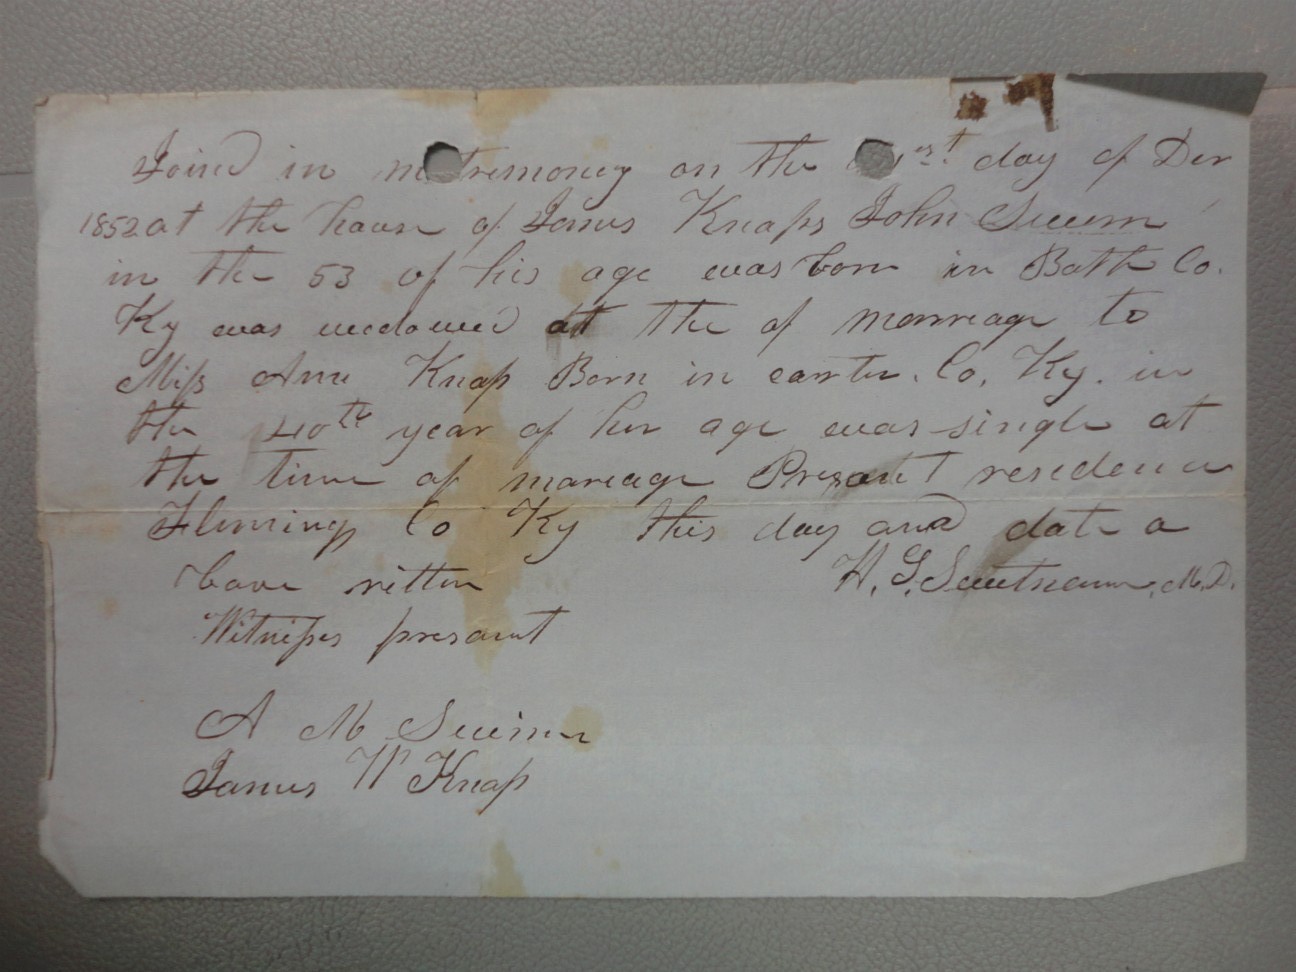 Joind in mtremoney on the day of Der
1852 at the house of James Knaps John Swim
in the 53 of his age was born in Bath Co.
Ky was wedowed at the of marreage to
Miss Ann Knap Born in carter. Co. Ky. in
the 40th year of her age was single at
the time of mareage Presant residence
Fleming Co Ky this day and date a
bove ritten H. G. M.D.
Witnesses presant
A M Swim
James W Knap